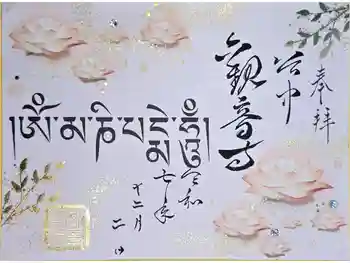 奉拝
観音寺
།ཨོཾ་མ་ཎི་པདྨེ་ཧཱུྃ།
令和
七年
十二月
二日